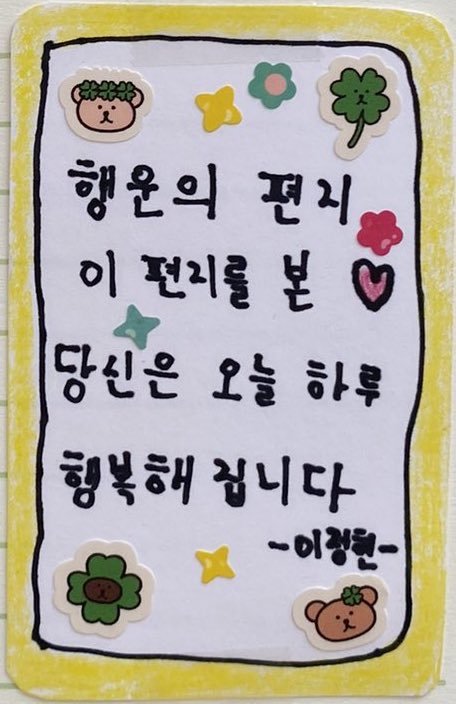 행운의 편지
이 편지를 본
당신은 오늘 하루
행복해 집니다
-이정현-